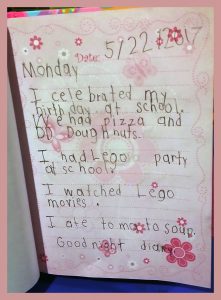 Date: 5/22/2017
Monday
I celebrated my
birthday at school.
We had pizza and
DD Doughnuts.
I had Lego party
at school.
I watched Lego
movies.
I ate tomato soup.
Good night diary